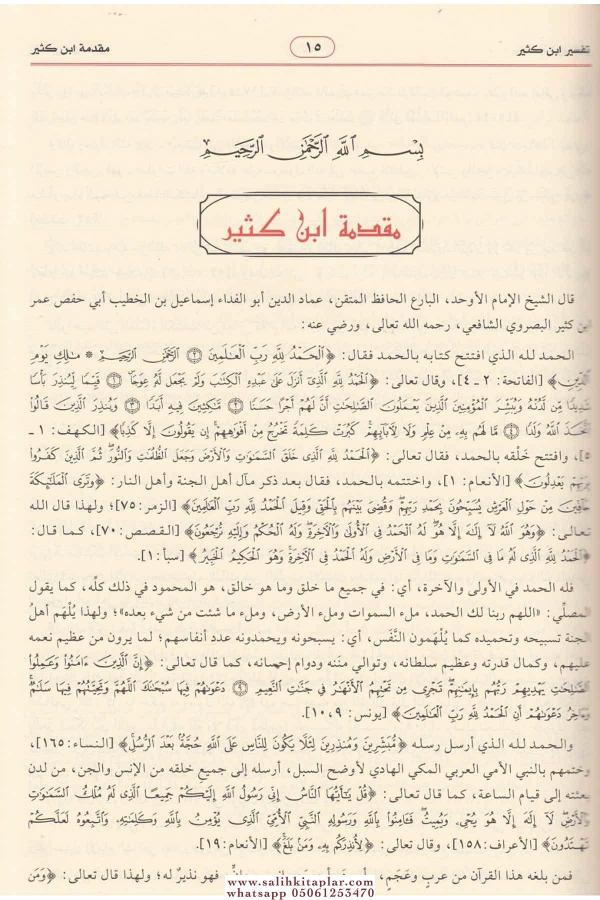 تفسير ابن كثير
١٥
مقدمة ابن كثير
بِسْمِ ٱللَّهِ ٱلرَّحْمَٰنِ ٱلرَّحِيمِ
مقدمة ابن كثير
قال الشيخ الإمام الأوحد، البارع الحافظ المتقن، عماد الدين أبو الفداء إسماعيل بن الخطيب أبي حفص عمر
ابن كثير البصروي الشافعي، رحمه الله تعالى، ورضي عنه:
الحمد لله الذي افتتح كتابه بالحمد فقال: ﴿ٱلْحَمْدُ لِلَّهِ رَبِّ ٱلْعَٰلَمِينَ ۝٢ ٱلرَّحْمَٰنِ ٱلرَّحِيمِ * مَٰلِكِ يَوْمِ
ٱلدِّينِ﴾ [الفاتحة: ٢ ـ ٤]، وقال تعالى: ﴿ٱلْحَمْدُ لِلَّهِ ٱلَّذِىٓ أَنزَلَ عَلَىٰ عَبْدِهِ ٱلْكِتَٰبَ وَلَمْ يَجْعَل لَّهُۥ عِوَجَا ۝١ قَيِّمًا لِّيُنذِرَ بَأْسًا
شَدِيدًا مِّن لَّدُنْهُ وَيُبَشِّرَ ٱلْمُؤْمِنِينَ ٱلَّذِينَ يَعْمَلُونَ ٱلصَّٰلِحَٰتِ أَنَّ لَهُمْ أَجْرًا حَسَنًا ۝٢ مَّٰكِثِينَ فِيهِ أَبَدًا ۝٣ وَيُنذِرَ ٱلَّذِينَ قَالُوا۟
ٱتَّخَذَ ٱللَّهُ وَلَدًا ۝٤ مَّا لَهُم بِهِۦ مِنْ عِلْمٍ وَلَا لِءَابَآئِهِمْ كَبُرَتْ كَلِمَةً تَخْرُجُ مِنْ أَفْوَٰهِهِمْ إِن يَقُولُونَ إِلَّا كَذِبًا﴾ [الكهف: ١ ـ
٥]، وافتتح خَلْقه بالحمد، فقال تعالى: ﴿ٱلْحَمْدُ لِلَّهِ ٱلَّذِى خَلَقَ ٱلسَّمَٰوَٰتِ وَٱلْأَرْضَ وَجَعَلَ ٱلظُّلُمَٰتِ وَٱلنُّورَ ثُمَّ ٱلَّذِينَ كَفَرُوا۟
بِرَبِّهِمْ يَعْدِلُونَ﴾ [الأنعام: ١]، واختتمه بالحمد، فقال بعد ذكر مآل أهل الجنة وأهل النار: ﴿وَتَرَى ٱلْمَلَٰٓئِكَةَ
حَآفِّينَ مِنْ حَوْلِ ٱلْعَرْشِ يُسَبِّحُونَ بِحَمْدِ رَبِّهِمْ وَقُضِىَ بَيْنَهُم بِٱلْحَقِّ وَقِيلَ ٱلْحَمْدُ لِلَّهِ رَبِّ ٱلْعَٰلَمِينَ﴾ [الزمر: ٧٥]؛ ولهذا قال الله
تعالى: ﴿وَهُوَ ٱللَّهُ لَآ إِلَٰهَ إِلَّا هُوَ لَهُ ٱلْحَمْدُ فِى ٱلْأُولَىٰ وَٱلْءَاخِرَةِ وَلَهُ ٱلْحُكْمُ وَإِلَيْهِ تُرْجَعُونَ﴾ [القصص: ٧٠]، كما قال:
﴿ٱلْحَمْدُ لِلَّهِ ٱلَّذِى لَهُۥ مَا فِى ٱلسَّمَٰوَٰتِ وَمَا فِى ٱلْأَرْضِ وَلَهُ ٱلْحَمْدُ فِى ٱلْءَاخِرَةِ وَهُوَ ٱلْحَكِيمُ ٱلْخَبِيرُ﴾ [سبأ: ١].
فله الحمد في الأولى والآخرة، أي: في جميع ما خلق وما هو خالق، هو المحمود في ذلك كلّه، كما يقول
المصلّي: «اللهم ربنا لك الحمد، ملء السموات وملء الأرض، وملء ما شئت من شيء بعده»؛ ولهذا يُلْهَم أهلُ
الجنة تسبيحه وتحميده كما يُلْهَمون النَّفَس، أي: يسبحونه ويحمدونه عدد أنفاسهم؛ لما يرون من عظيم نعمه
عليهم، وكمال قدرته وعظيم سلطانه، وتوالي مننه ودوام إحسانه، كما قال تعالى: ﴿إِنَّ ٱلَّذِينَ ءَامَنُوا۟ وَعَمِلُوا۟
ٱلصَّٰلِحَٰتِ يَهْدِيهِمْ رَبُّهُم بِإِيمَٰنِهِمْ تَجْرِى مِن تَحْتِهِمُ ٱلْأَنْهَٰرُ فِى جَنَّٰتِ ٱلنَّعِيمِ ۝٩ دَعْوَىٰهُمْ فِيهَا سُبْحَٰنَكَ ٱللَّهُمَّ وَتَحِيَّتُهُمْ فِيهَا سَلَٰمٌ
وَءَاخِرُ دَعْوَىٰهُمْ أَنِ ٱلْحَمْدُ لِلَّهِ رَبِّ ٱلْعَٰلَمِينَ﴾ [يونس: ٩، ١٠].
والحمد لله الذي أرسل رسله ﴿مُّبَشِّرِينَ وَمُنذِرِينَ لِئَلَّا يَكُونَ لِلنَّاسِ عَلَى ٱللَّهِ حُجَّةٌۢ بَعْدَ ٱلرُّسُلِ﴾ [النساء: ١٦٥]،
وختمهم بالنبي الأمي العربي المكي الهادي لأوضح السبل، أرسله إلى جميع خلقه من الإنس والجن، من لدن
بعثته إلى قيام الساعة، كما قال تعالى: ﴿قُلْ يَٰٓأَيُّهَا ٱلنَّاسُ إِنِّى رَسُولُ ٱللَّهِ إِلَيْكُمْ جَمِيعًا ٱلَّذِى لَهُۥ مُلْكُ ٱلسَّمَٰوَٰتِ
وَٱلْأَرْضِ لَآ إِلَٰهَ إِلَّا هُوَ يُحْىِۦ وَيُمِيتُ فَـَٔامِنُوا۟ بِٱللَّهِ وَرَسُولِهِ ٱلنَّبِىِّ ٱلْأُمِّىِّ ٱلَّذِى يُؤْمِنُ بِٱللَّهِ وَكَلِمَٰتِهِۦ وَٱتَّبِعُوهُ لَعَلَّكُمْ
تَهْتَدُونَ﴾ [الأعراف: ١٥٨]، وقال تعالى: ﴿لِأُنذِرَكُم بِهِۦ وَمَنۢ بَلَغَ﴾ [الأنعام: ١٩].
فمن بلغه هذا القرآن من عربٍ وعَجَمٍ، فهو نذيرٌ له؛ ولهذا قال تعالى: ﴿وَمَن
www.salihkitaplar.com
whatsapp 05061253470